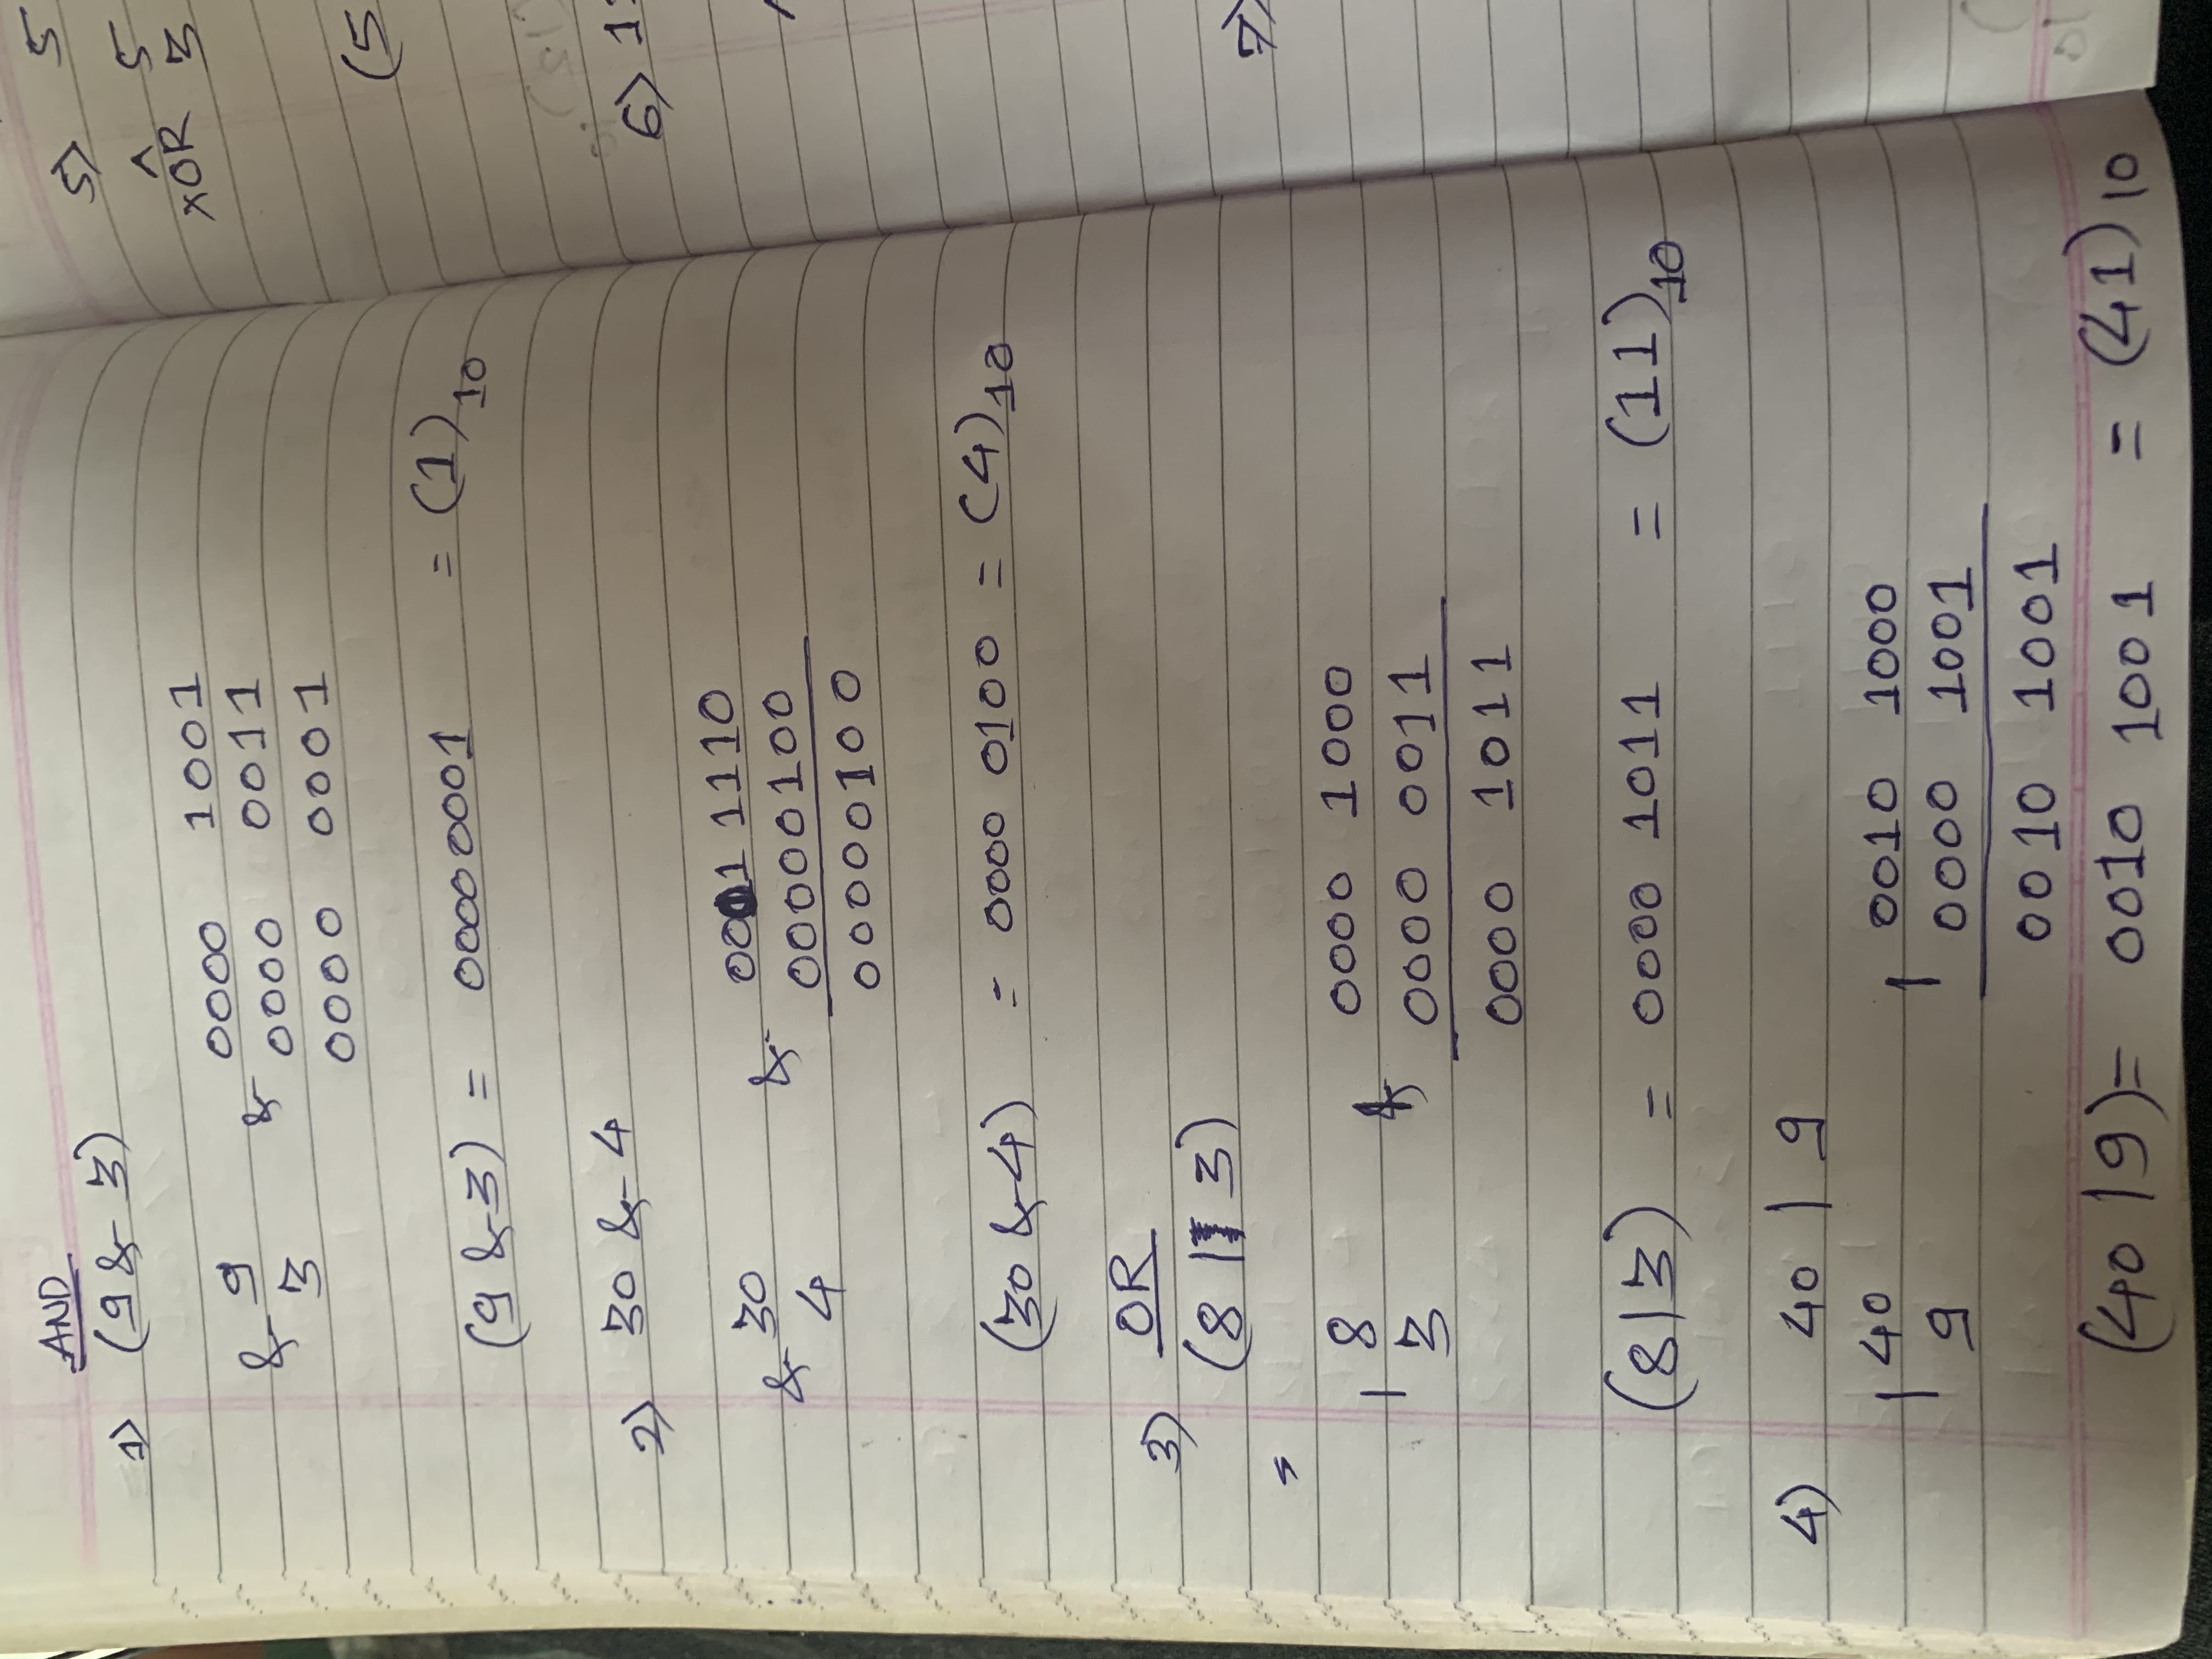 AND
1) (9 & 3)
& 9 & 0000 1001
3 0000 0011
0000 0001
(9 & 3) = 00000001 = (1)10
2) 30 & 4
& 30 & 0001 1110
4 00000100
00000100
(30 & 4) = 0000 0100 = (4)10
3) OR
(8 | 3)
| 8 & 0000 1000
3 0000 0011
0000 1011
(8|3) = 0000 1011 = (11)10
4) 40 | 9
| 40 | 0010 1000
9 0000 1001
0010 1001
(40 | 9) = 0010 1001 = (41)10
5) 5
^ 5
XOR 3
(5
6) 1
7)